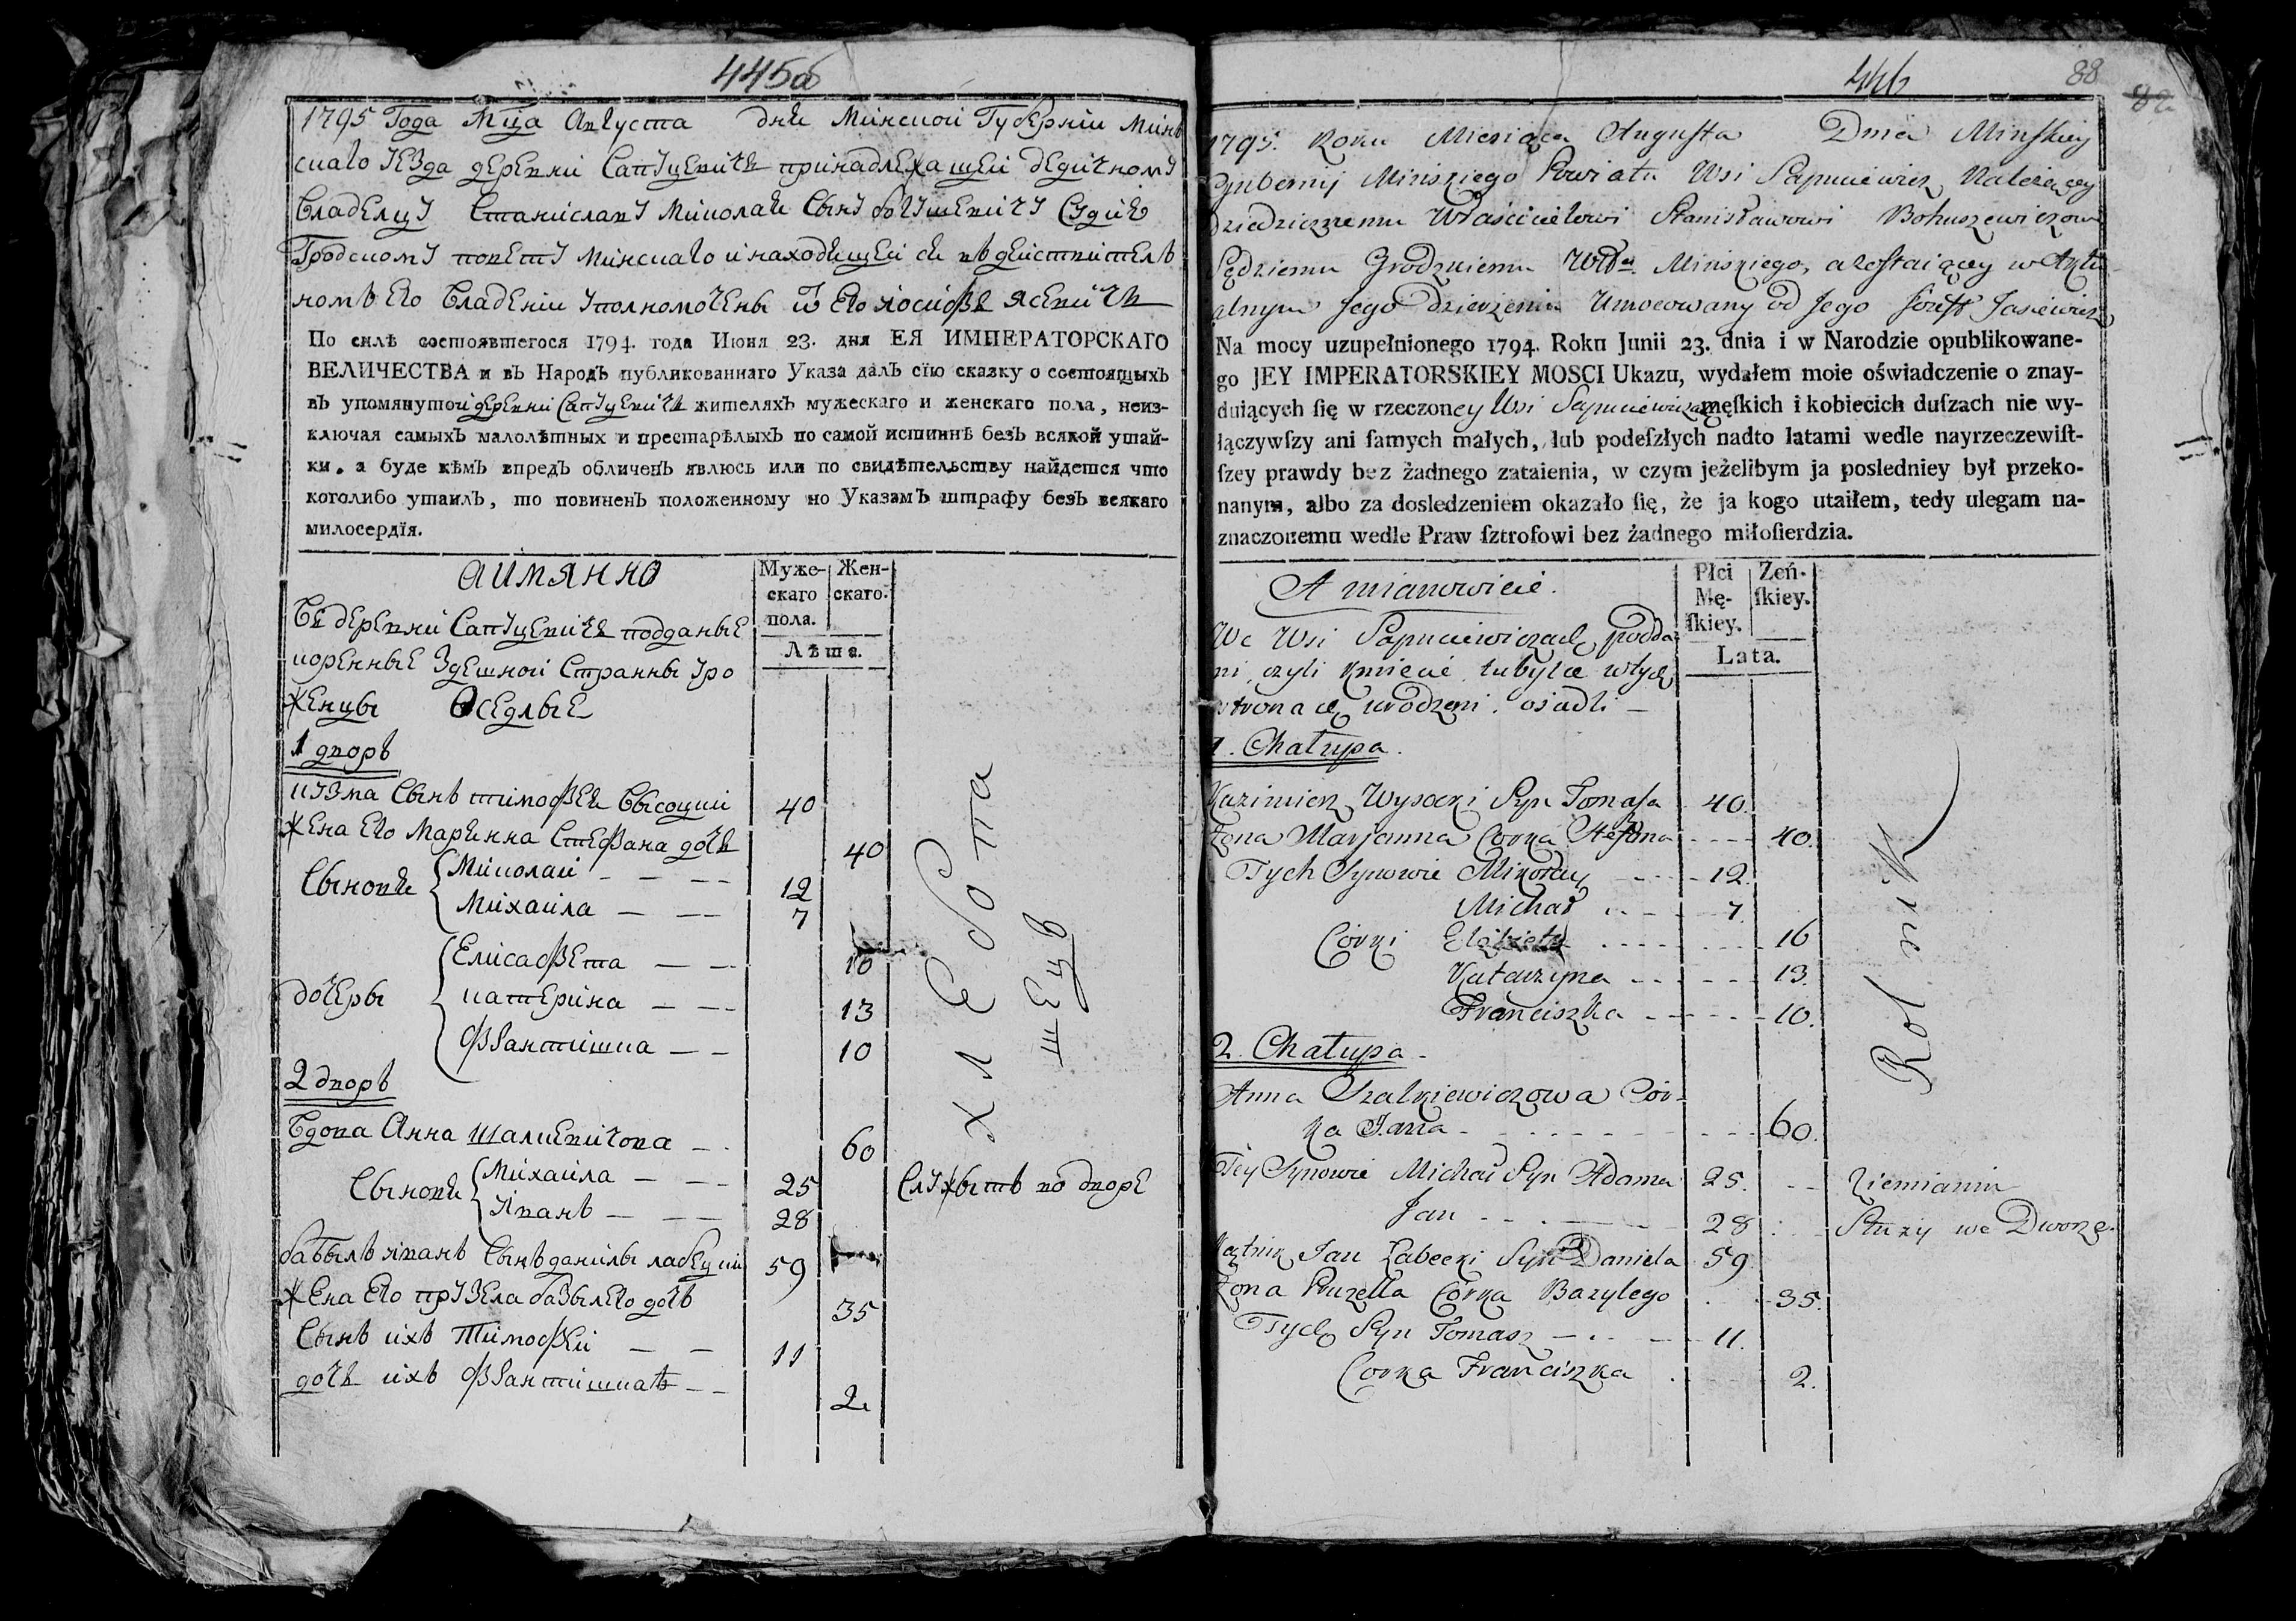 445об
1795 Года Мца Августа дня Минской Губернии Минъ
скаго уезда деревни Сапуцевичь принадлежащей дедичному
владелцу Станиславу Миколая сыну богушевичу Судиѣ
Гродскому повету Минскаго и находящей ся въ действитель
номъ его владении уполномочены ѿ его иосифъ ясевичь
По силѣ состоявшегося 1794. года Июня 23. дня ЕЯ ИМПЕРАТОРСКАГО
ВЕЛИЧЕСТВА и въ Народъ публикованнаго Указа далъ сїю сказку о состоящыхъ
въ упомянутой деревни Сапуцевичь жителяхъ мужескаго и женскаго пола, неиз-
ключая самыхъ малолѣтныхъ и престарѣлыхъ по самой истиннѣ безъ всякой утай-
ки. а буде кѣмъ впредъ обличенъ явлюсь или по свидѣтельству найдется что
коголибо утаилъ, то повиненъ положенному по Указамъ штрафу безъ всякаго
милосердїя.
АИМЯННО
Муже-
скаго
пола.
Жен-
скаго.
Лѣта.
Въ деревни Сапуцевичь подданые
коренные здешной Странны уро
женцы Оседлые
1 дворъ
кузма сынъ тимофея высоцкий 40
жена его Марянна Стефана дочь 40
Сыновя Миколай 12
Михайла 7
дочеры Елисафета 16
катерина 13
Франтишка 10
2 дворъ
Вдова Анна шалкевичова 60
Сыновя Михайла 25 Служыть во дворе
Иванъ 28
бабылъ иванъ сынъ данилы лабецкий 59
жена его прузела базылего дочь 35
Сынъ ихъ Тимофей 11
дочь ихъ Франтишка 2
хлебопа
шецъ
446
88
1795. Roku Miesiąca Augusta Dnia Minskiey
Gubernij Minskiego Powiatu Wsi Sapuciewicz Należącey
dziedzicznemu Właścicielowi Stanisławowi Bohuszewiczow
Sędziemu Grodzkiemu Wdzˢᵗ Minskiego, a zostaiącey w Aktu
alnym Jego dzierżeniu Umocowany od Jego Jozeff Jasiewicz
Na mocy uzupełnionego 1794. Roku Junii 23. dnia i w Narodzie opublikowane-
go JEY IMPERATORSKIEY MOSCI Ukazu, wydałem moie oświadczenie o znay-
duiących ſię w rzeczoney Wsi Sapuciewiczach męſkich i kobiecich duſzach nie wy-
łączywſzy ani ſamych małych, lub podeſzłych nadto latami wedle nayrzeczewiſt-
ſzey prawdy bez żadnego zataienia, w czym jeżelibym ja posledniey był przeko-
nanym, albo za dosledzeniem okazało ſię, że ja kogo utaiłem, tedy ulegam na-
znaczonemu wedle Praw ſztrofowi bez żadnego miłoſierdzia.
A mianowicie.
Płci
Mę-
ſkiey.
Żeń-
ſkiey.
Lata.
We Wsi Sapuciewiczach podda
ni, czyli kmiecie tubylce w tych
stronach urodzeni, osiadli
1. Chałupa.
Kazimierz Wysocki Syn Tomasa 40.
Żona Marjanna Corka Stefana 40.
Tych Synowie Mikołay 12.
Michał 7.
Córki Elzbieta 16
Katarzyna 13.
Franciszka 10.
2. Chałupa
Anna Szalkiewiczowa Cór-
ka Jana 60.
Tey Synowie Michał Syn Adama 25. Ziemianin
Jan 28 Słuzy we Dworze.
Kątnik Jan Łabecki Syn Daniela 59.
Żona Pruzella Córka Bazylego 35.
Tych Syn Tomasz 11.
Corka Franciszka 2.
Rolnik